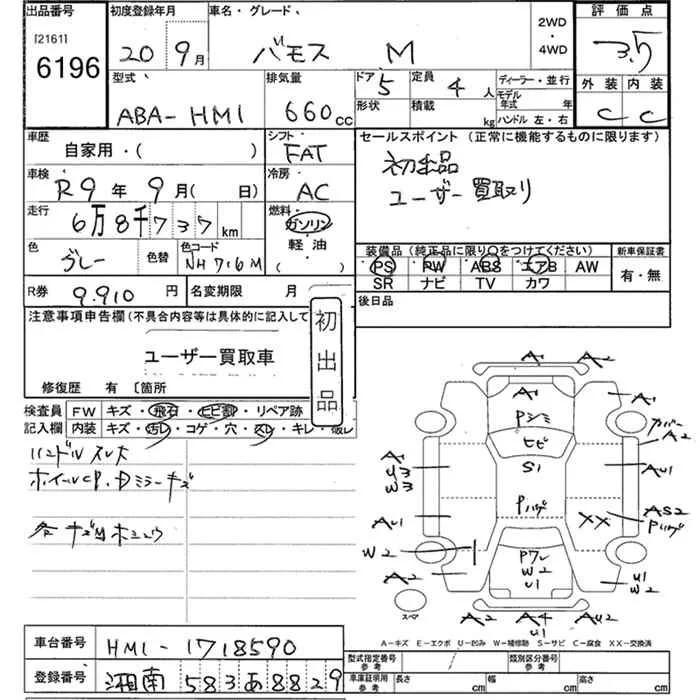 出品番号
[2161]
6196
初度登録年月
20 9月
車名・グレード
バモス M
2WD
・
4WD
評価点
3.5
型式
ABA-HM1
排気量
660cc
ドア 5
定員 4人
ディーラー・並行
モデル年式 年
形状
積載 kg
ハンドル 左・右
外装 内装
C C
車歴
自家用・( )
シフト
FAT
セールスポイント (正常に機能するものに限ります)
初出品
ユーザー買取り
車検
R9年 9月( 日)
冷房
AC
走行
6万8千737km
燃料
ガソリン
軽油
( )
色
グレー
色替
色コード
NH716M
装備品 (純正品に限り○をつけてください)
PS PW ABS エアB AW
SR ナビ TV カワ
新車保証書
有・無
R券 9,910円
名変期限 月
後日品
注意事項申告欄 (不具合内容等は具体的に記入して
初出品
ユーザー買取車
修復歴 有 〔箇所
検査員
記入欄
FW キズ・飛石・ヒビ割・リペア跡
内装 キズ・汚レ・コゲ・穴・スレ・キレ・破レ
ハンドルスレ大
ホイールCP.Dミラーキズ
A1 A2
A1
A1
Pシミ
カバー
A2
ヒビ
A1
U3
W3
S1
AU1
Pハゲ
AU1
XX
AS2
Pハゲ
W2
Pワレ
W2
U1
A2
U1
W2
スペア
A2 A4 AU2
U1
A−キズ E−エクボ U−凹み W−補修跡 S−サビ C−腐食 XX−交換済
車台番号
HM1-1718590
登録番号
湘南 583 あ 8829
型式指定番号
参考
類別区分番号
参考
車庫証明用
参考
長さ cm
幅 cm
高さ cm